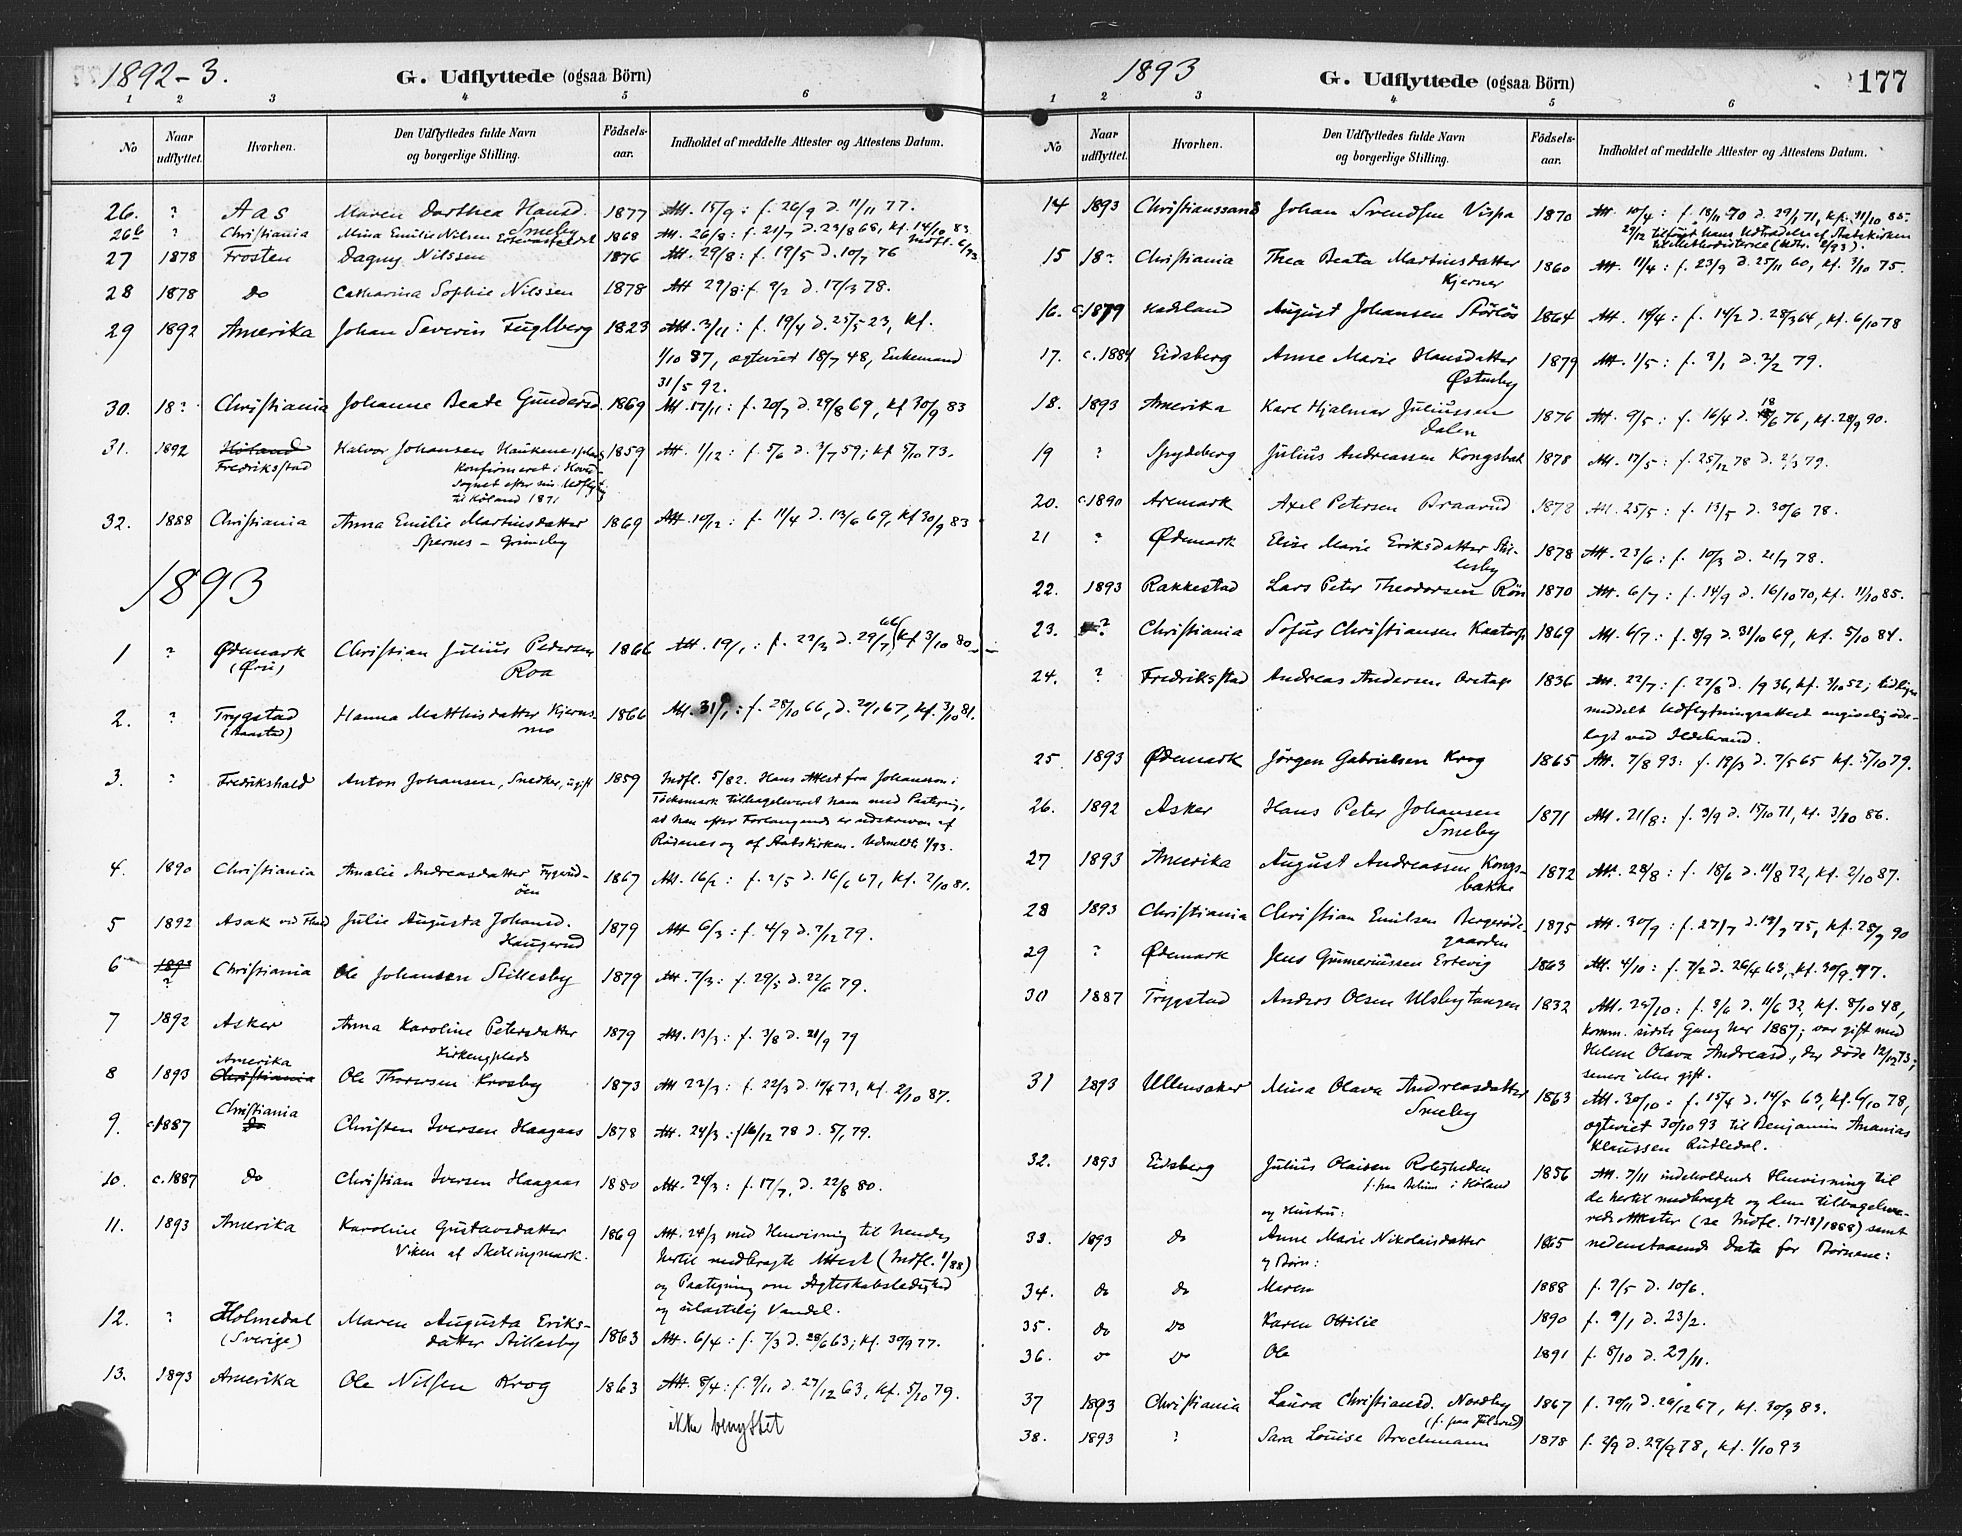 1892-3.
G. Udflyttede (ogsaa Börn)
1 2 3 4 5 6
No
Naar udflyttet.
Hvorhen.
Den Udflyttedes fulde Navn og borgerlige Stilling.
Födsels-aar.
Indholdet af meddelte Attester og Attestens Datum.
26. ? Aas Maren Dorthea Hansd. Smeby 1877 Att. 15/9: f. 26/9 d. 11/11 77.
26b ? Christiania Mina Emilie Nilsen 1868 Att. 26/8: f. 21/7 d. 23/8 68, kf. 14/10 83
27 1878 Trosten Dagny Nilssen 1876 Att. 29/8: f. 19/5 d. 10/7 76
28 1878 do Catharina Sophie Nilssen 1878 Att 29/8: f. 9/2 d. 17/3 78.
29 1892 Amerika Johan Severin Fuglberg 1823 Att. 3/11: f. 19/4 d. 25/5 23, kf.
1/10 37, ogtevier 18/7 48, Enkemand
31/5 92.
30. 18? Christiania Johanne Beate Gundersd. 1869 Att. 17/11: f. 20/7 d. 29/8 69, kf 30/9 83
31. 1892 Höland Halvor Johansen 1859 Att. 1/12: f. 5/6 d. 3/7 59; kf 5/10 73.
Fredriksstad Konfirmeret i Hoved-
Sognet efter sin Udflytn
til Höland 1871
32. 1888 Christiania Anna Emilie Martinsdatter 1869 Att. 10/12: f. 11/4 d. 13/6 69, kf 30/9 83
Spernes - Grimsby
1893
1 ? Ödemark Christian Julius Pedersen 1866 Att. 19/1: f. 22/3 d. 29/7 66 (kf 3/10 80)
(Öri) Roa
2. ? Trygstad Hanna Matthisdatter Kjerns- 1866 Att. 31/1: f. 28/10 66, d. 29/1 67, kf. 3/10 81.
(Baastad) mo
3. ? Fredrikshald Anton Johansen, Snedker, ugift 1859 Indfl. 5/82. Hans Attest fra Johansson i
Töcksmark tilbageleveret ham med Paategning,
at han efter Forlangende er udskreven af
Rödenes og af Statskirken. Udmeldt 1/93.
4. 1890 Christiania Amalie Andreasdatter 1867 Att. 16/2: f. 2/5 d. 16/6 67, kf. 2/10 81.
öen
5 1892 Asak ved Fhald Julie Augusta Johansd. 1879 Att 6/3: f. 4/9 d. 7/12 79.
Haugerud
6 1893 Christiania Ole Johansen Stillesby 1879 Att. 7/3: f. 29/5 d. 22/6 79.
?
7 1892 Asker Anna Karoline Petersdatter 1879 Att. 13/3: f. 3/8 d. 21/9 79
Kirkengplads
Amerika
8 1893 Christiania Ole Thoresen Krosby 1873 Att 22/3: f. 22/3 d. 14/4 73, kf. 2/10 87.
Christiania
9. c.1887 do Christen Iversen Haagaas 1878 Att. 24/3: f 16/12 78 d. 5/1 79.
10. c.1887 do Christian Iversen Haagaas 1880 Att. 24/3: f. 17/7, d. 22/8 80.
11. 1893 Amerika Karoline Gustavsdatter 1869 Att. 24/3 med Henvisning til hendes
Viken af Skillingmark. hertil medbragte Attest (Indfl. 1/88)
og Paategning om Ægteskabsledighed
og ulastelig Vandel.
12. ? Holmedal Maren Augusta Eriks-
(Sverige) datter Stillesby 1863 Att. 6/4: f. 7/3 d. 28/6 63; kf. 30/9 77.
13. 1893 Amerika Ole Nilsen Krog 1863 Att. 8/4: f. 9/11 d. 27/12 63, kf. 5/10 79.
ikke benyttet
1893
G. Udflyttede (ogsaa Börn)
177
1 2 3 4 5 6
No
Naar udflyttet.
Hvorhen.
Den Udflyttedes fulde Navn og borgerlige Stilling.
Födsels-aar.
Indholdet af meddelte Attester og Attestens Datum.
14 1893 Christianssand Johan Svendsen Vispa 1870 Att. 10/4: f. 18/11 70 d. 29/1 71, kf. 11/10 85.
29/12 tilföiet hans Udtrædelse af Statskirken
til Methodisterne (Udtr. 2/93).
15 18? Christiania Thea Beata Martinsdatter 1860 Att. 11/4: f. 23/9 d. 25/11 60, kf. 3/10 75.
Kjerner
16. c.1879 August Johansen Störlös 1864 Att. 18/4: f. 14/2 d. 28/3 64, kf. 6/10 78
17. c.1884 Eidsberg Anne Marie Hansdatter 1879 Att. 1/5: f. 3/1 d. 2/2 79.
Östenby
18. 1893 Amerika Karl Hjalmar Juliussen 1876 Att. 9/5: f. 16/4 d. 18/6 76, kf. 28/9 90.
Dalen
19 ? Spydeberg Julius Andreassen Kongsbak 1878 Att. 17/5: f. 25/12 78 d. 2/3 79.
20. c.1890 Aremark Axel Petersen Braarud 1878 Att. 25/5: f. 13/5 d. 30/6 78.
21 ? Ödemark Elise Marie Eriksdatter Stil- 1878 Att. 23/6: f. 10/3 d. 21/7 78.
lesby
22. 1893 Rakkestad Lars Peter Theodorsen Rön 1870 Att. 6/7: f. 14/9 d. 16/10 70, kf. 11/10 85.
23. ? Christiania Sofus Christiansen Kaatorp 1869 Att. 6/7: f. 8/9 d. 31/10 69, kf. 5/10 84.
24. ? Fredriksstad Andreas Andersen 1836 Att. 22/7: f. 27/8 d. /9 36, kf. 3/10 52; tidligere
meddelt Udflytningsattest angivelig öde-
lagt ved Ildebrand.
25. 1893 Ödemark Jörgen Gabrielsen Krog 1865 Att. 7/8 93: f. 19/3 d. 7/5 65 kf. 5/10 79.
26. 1892 Asker Hans Peter Johansen 1871 Att. 21/8: f. 3/9 d. 15/10 71, kf. 3/10 86.
Smeby
27 1893 Amerika August Andreassen Kongs- 1872 Att. 28/8: f. 18/6 d. 11/8 72, kf. 2/10 87.
bakke
28 1893 Christiania Christian Emilsen Bergeröde- 1875 Att. 30/9: f. 27/7 d. 19/9 75, kf. 28/9 90
gaarden
29 ? Ödemark Jens Gumeriussen Ertevig 1863 Att. 4/10: f. 7/2 d. 26/4 63, kf. 30/9 77.
30 1887 Trygstad Andres Olsen Ulsbytangen 1832 Att. 24/10: f. 3/6 d. 11/6 32, kf. 8/10 48,
komm. sidste Gang her 1887; var gift med
Helene Olava Andreasd., der döde 12/12 73;
senere ikke gift.
31 1893 Ullensaker Mina Olava Andreasdatter 1863 Att. 30/10: f. 15/4 d. 14/5 63, kf. 6/10 78,
Smeby ægteviet 30/10 93 til Benjamin Ananias
Klaussen Rutledal.
32. 1893 Eidsberg Julius Olaisen Roligheden 1856 Att. 7/11 indeholdende Henvisning til
f. paa i Höland de hertil medbragte og dem tilbageleve-
og Hustru: rede Attester (se Indfl. 17-18/1888) samt
33. 1893 do Anne Marie Nikolaisdatter 1865 nedenstaaende Data for Börnene:
og Börn:
34. do do Maren 1888 f. 9/5 d. 10/6.
35. do do Karen Ottilie 1890 f. 9/1 d. 23/2.
36. do do Ole 1891 f. 8/10 d. 29/11.
37 1893 Christiania Laura Christiansd. Nordby 1867 f. 30/11 d. 26/12 67, kf. 30/9 83.
38. 1893 ? Sara Louise Brochmann 1878 f. 2/9 d. 29/9 78, kf. 1/10 93